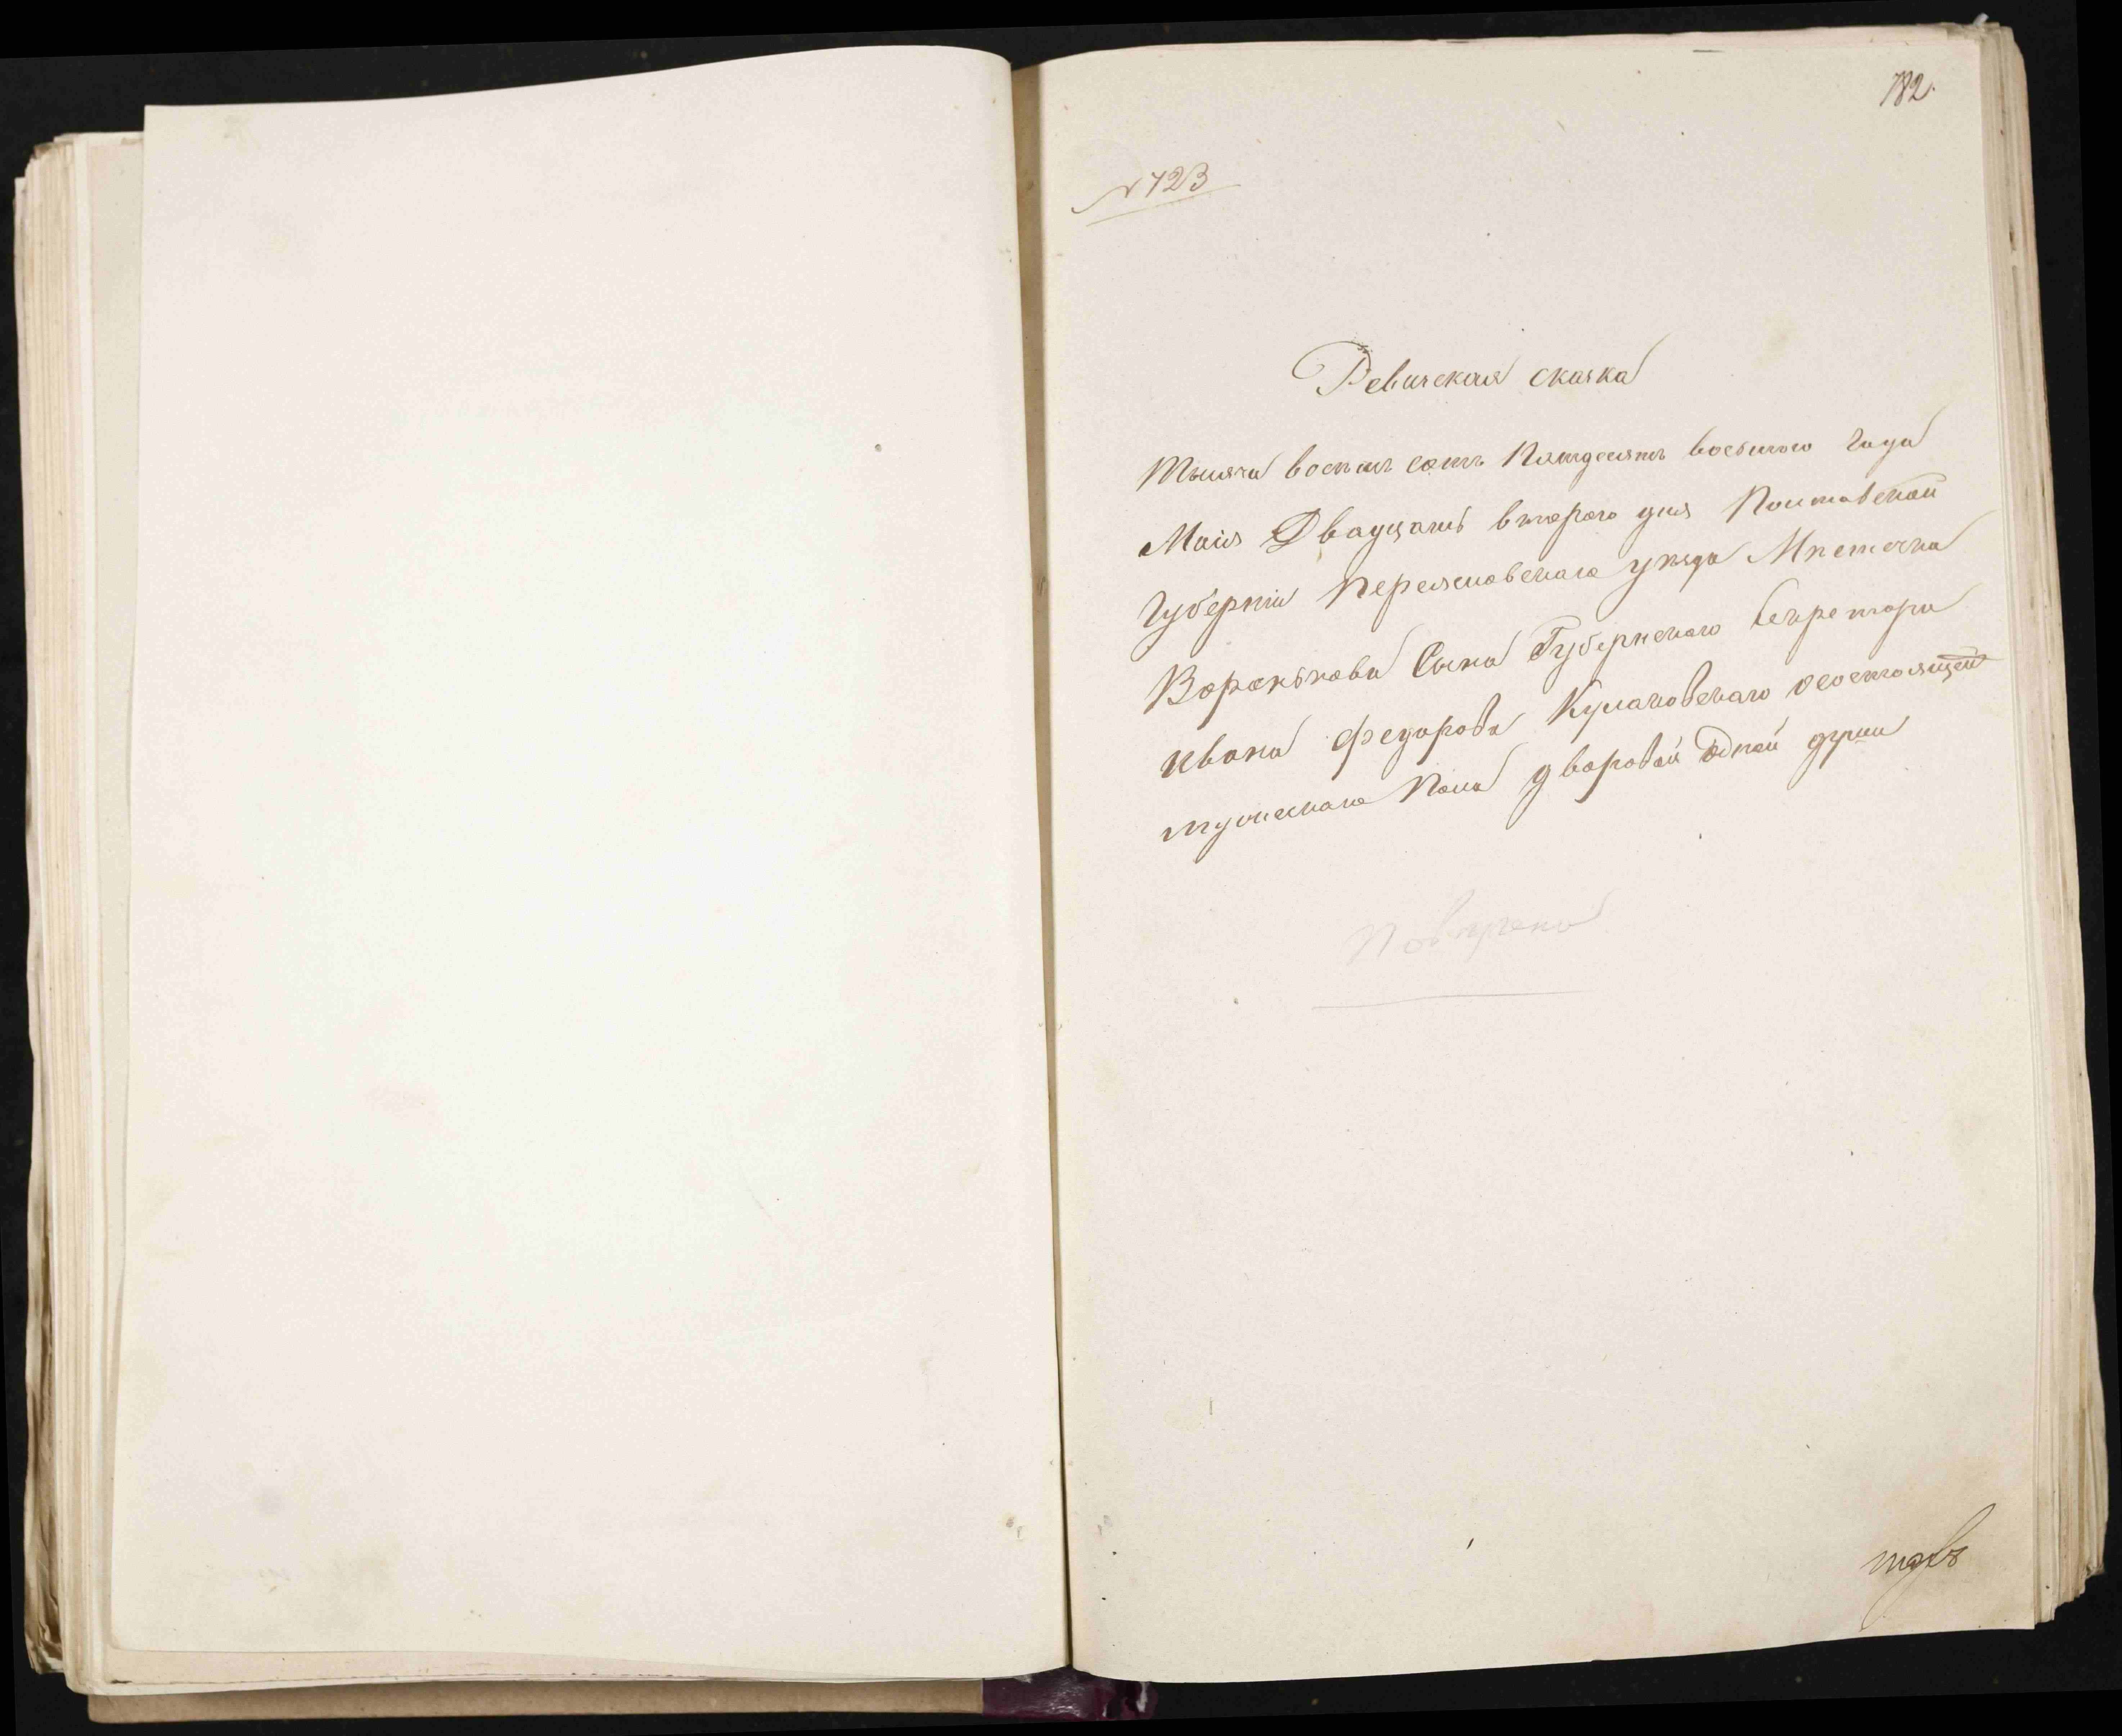 782.
№ 723
Ревиская сказка
Тысяча восемь сотъ Пятдесятъ восьмого Года
Маія Двадцать второго дня Полтавской
Губерніи Переясловскаго уѣзда Мѣстечка
Воронькова Сына Губернскаго Секретаря
Ивана Федорова Кулаковскаго осостоящей
мужескаго Пола дворовой одной души
Повѣрено